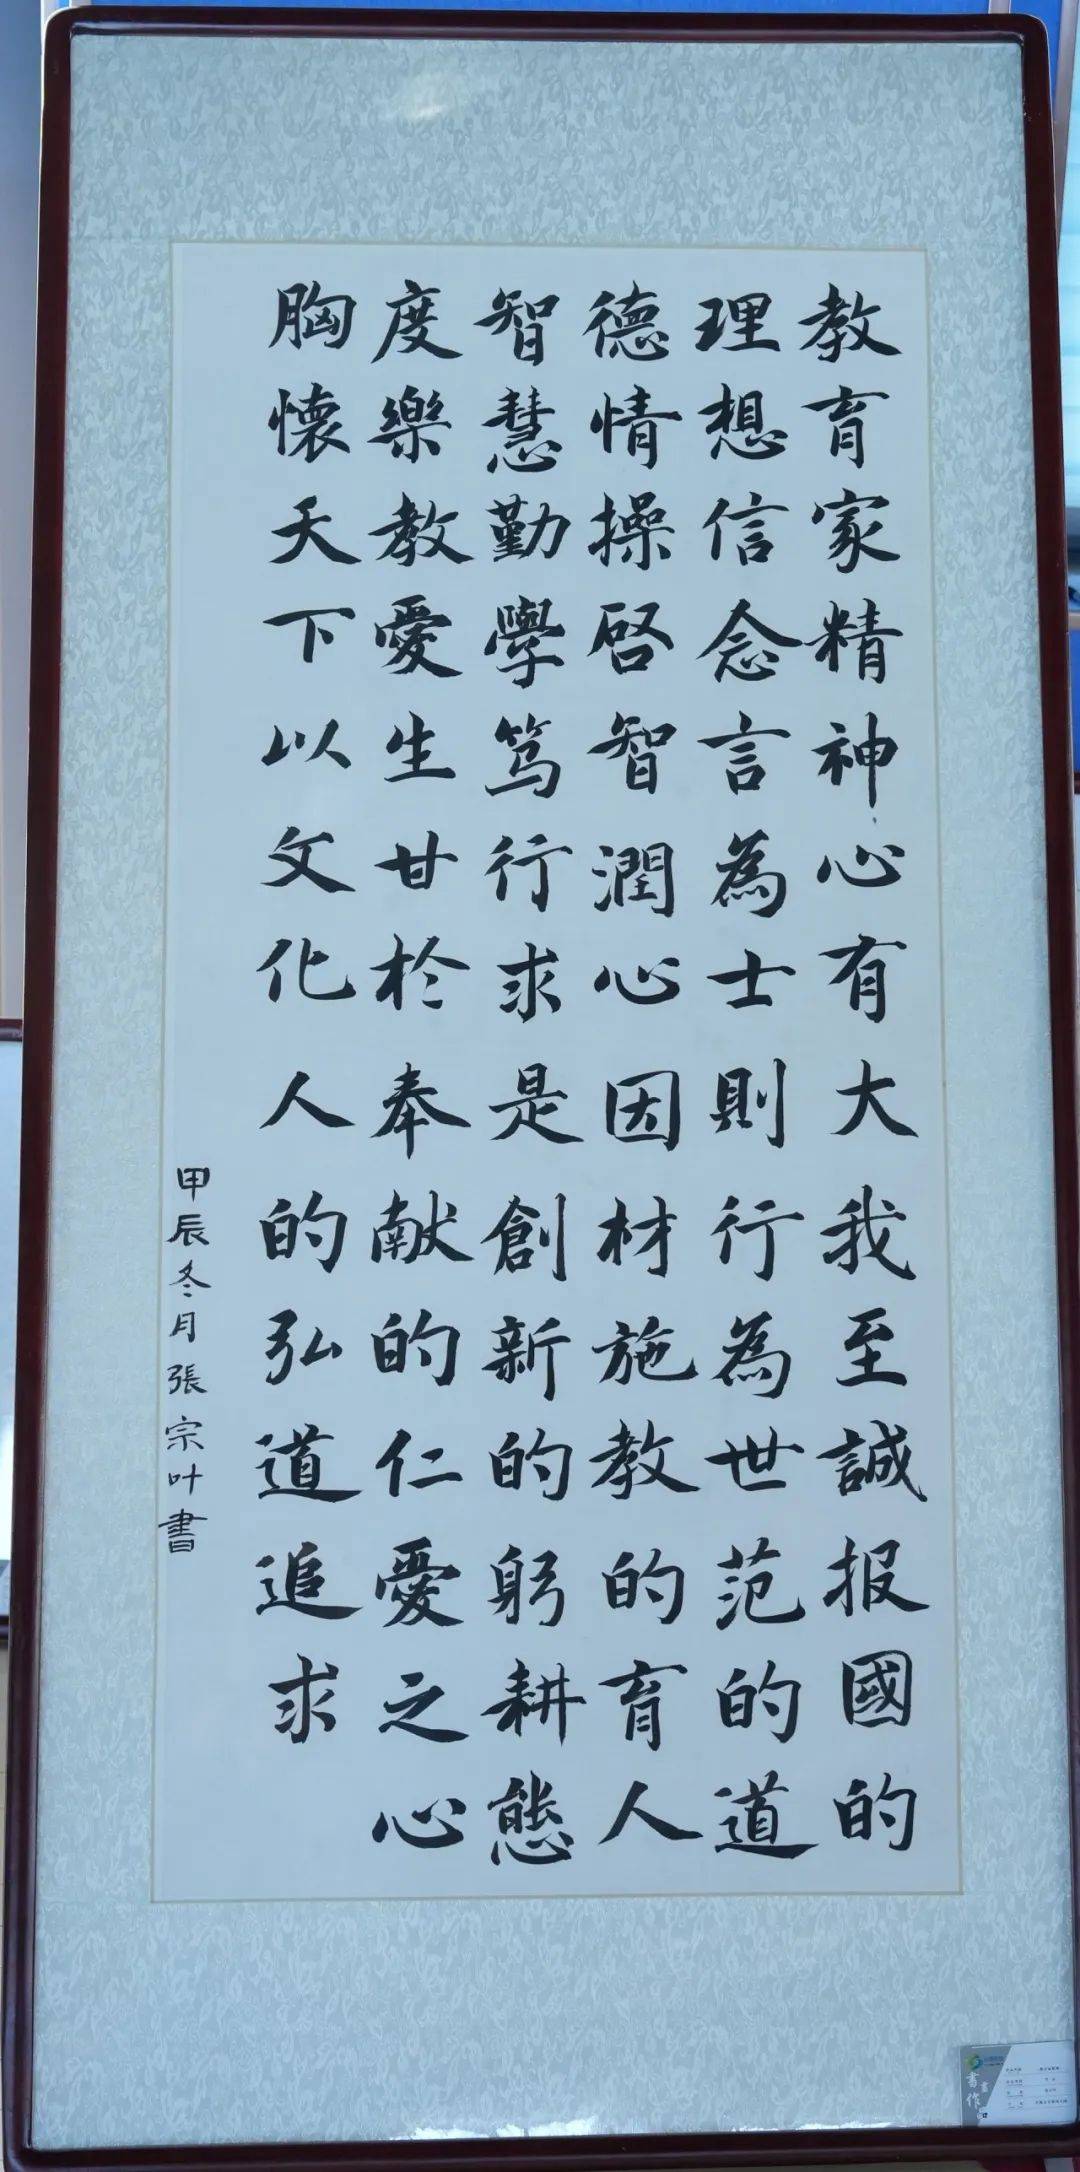 教育家精神心有大我至誠报國的
理想信念言為士則行為世范的道
德情操啓智潤心因材施教的育人
智慧勤學笃行求是創新的躬耕態
度樂教愛生甘於奉献的仁愛之心
胸懷天下以文化人的弘道追求
甲辰冬月張宗叶書
書畫作